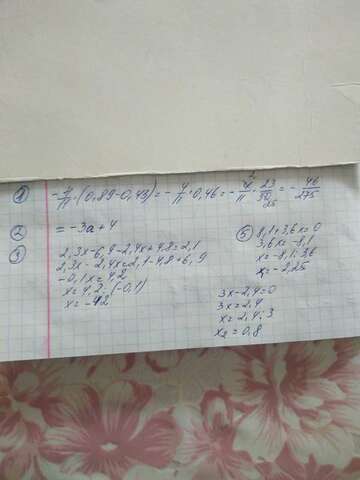 ① -4/11 · (0,89-0,43) = -4/11 · 0,46 = -4/11 · 23/50 = -46/275
② = -3a+4
③ 2,3x-6,9-2,4x+4,8=2,1
2,3x-2,4x=2,1-4,8+6,9
-0,1x=4,2
x=4,2:(-0,1)
x=-42
⑤ 8,1+3,6x=0
3,6x=-8,1
x=-8,1:3,6
x₁=-2,25
3x-2,4=0
3x=2,4
x=2,4:3
x₂=0,8